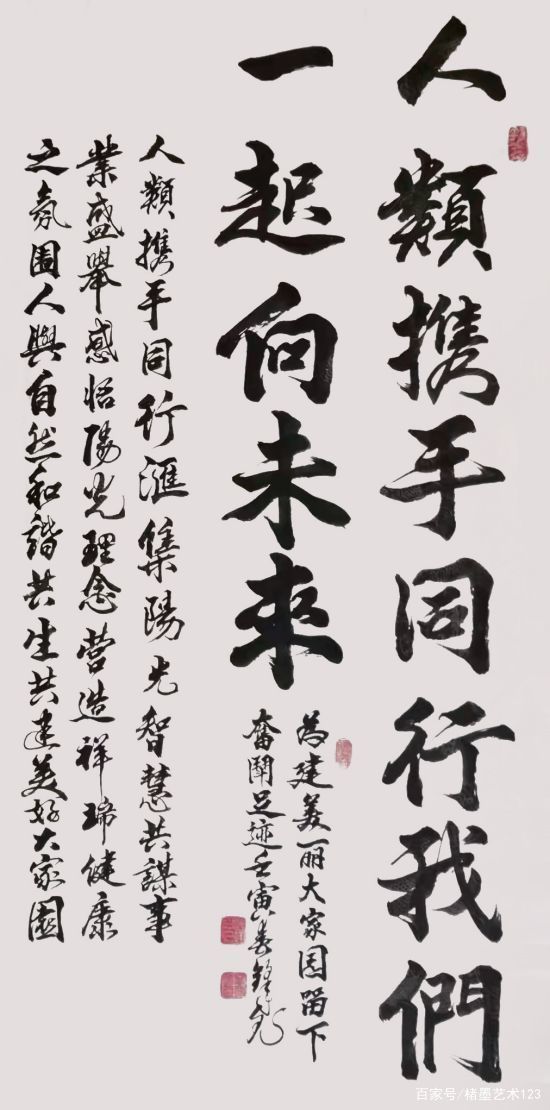 人類携手同行我們
一起向未來
為建美丽大家園留下
奮鬭足迹壬寅春
人類携手同行滙集陽光智慧共謀事
業盛舉感悟陽光理念营造祥瑞健康
之氛围人與自然和諧共生共建美好大家園
百家号/楮墨艺术123